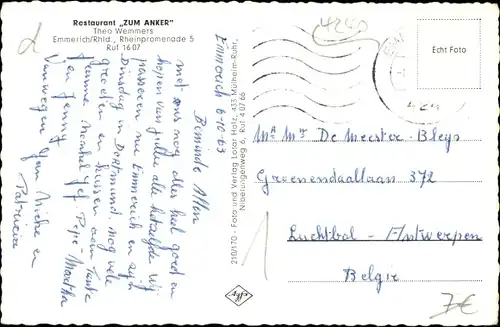 Restaurant „ZUM ANKER"
Theo Wemmers
Emmerich/Rhld., Rheinpromenade 5
Ruf 16 07
Emmerich 6-10-63
Beminde Allen
met ons nog alles heel goed en
hopen van jullie alle hetzelfde wij
passeren nu Emmerich en zijn
Dinsdag in Dortmund. nog vele
groeten en kussen aan Tante
Jeanne Nonkel Jef Pepe - Martha
en Jenny
Vanwegen Uw Nichie en
Patricia
210/170 - Foto und Verlag Lotar Holz, 433 Mülheim-Ruhr,
Nibelungenweg 6, Ruf 4 07 66
Agfa
4240
Echt Foto
Mr Mr De Meester-Bleys
Groenendaallaan 372
Luchtbal - Antwerpen
Belgie
7€